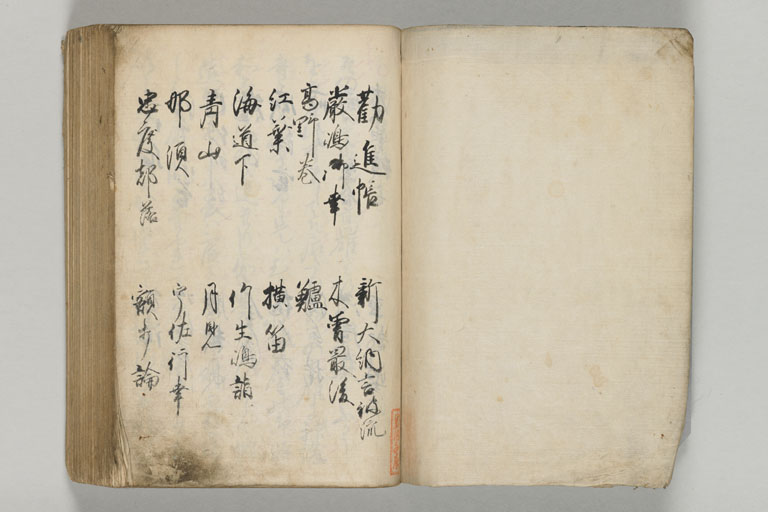 勸進帳
新大納言被流
嚴嶋御幸
木曽最後
高野巻
鱸
紅葉
横笛
海道下
竹生嶋詣
青山
月見
那須
宇佐行幸
忠度都落
額打論